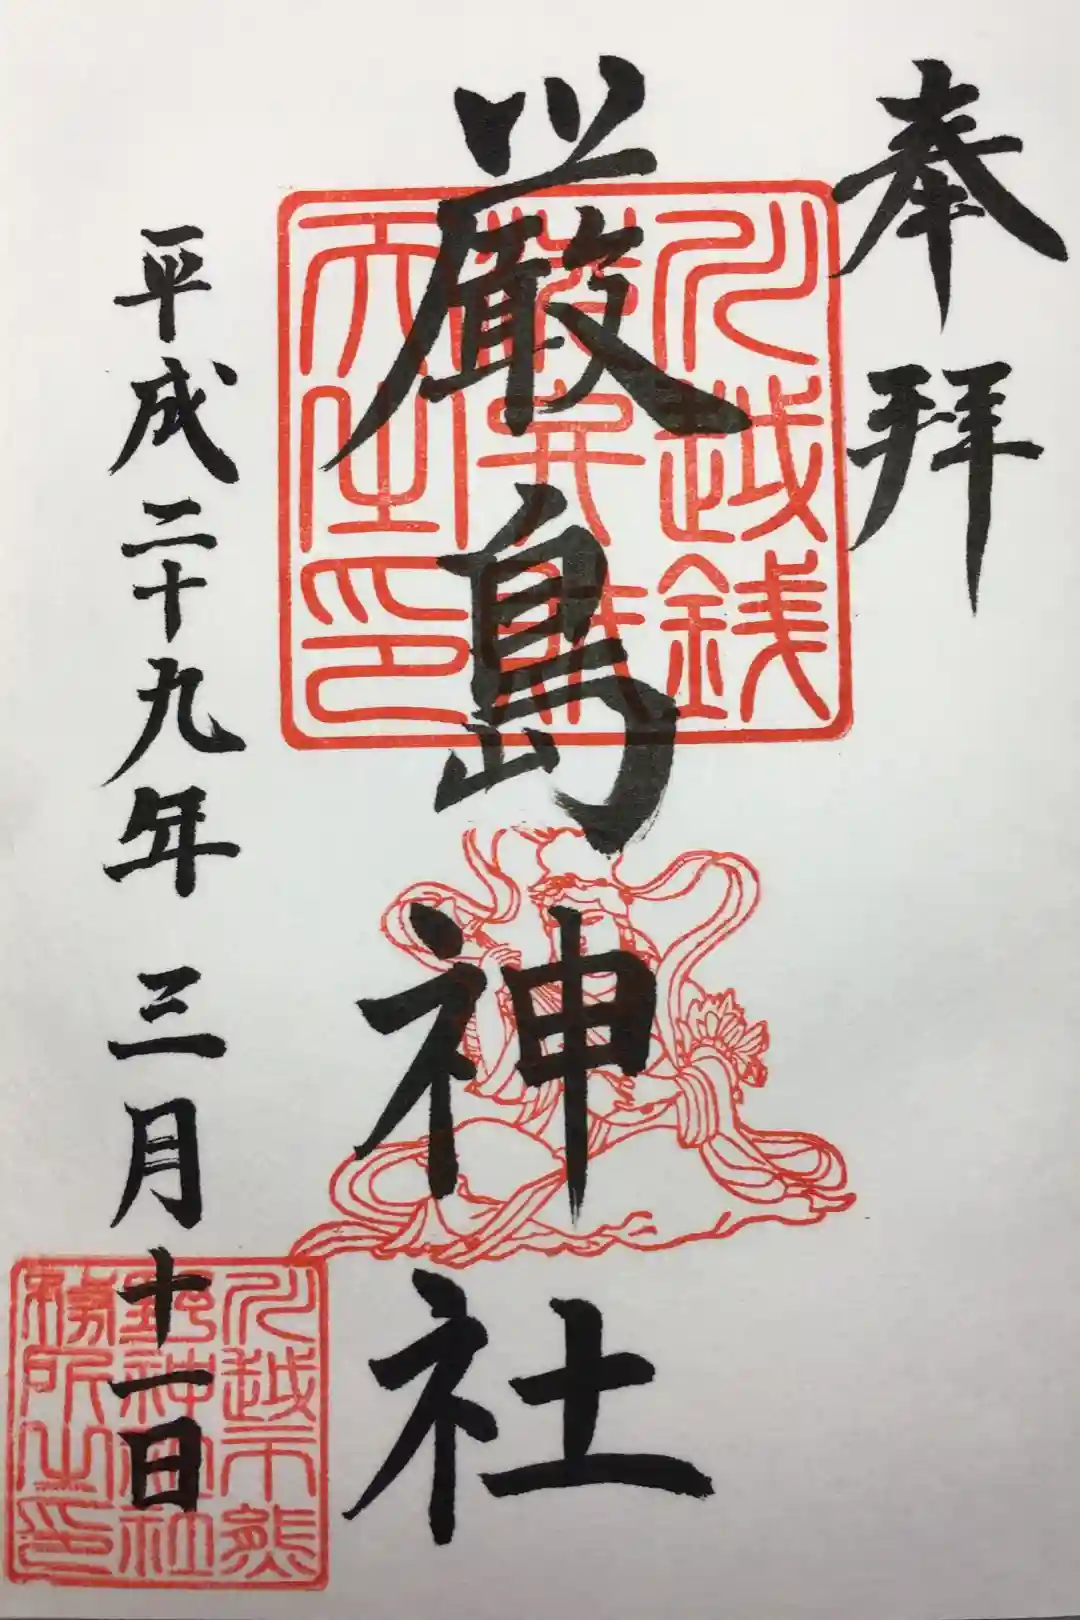 奉拝
厳島神社
川越銭
洗弁財
天之印
平成二十九年三月十一日
川越市熊
野神社社
務所之印